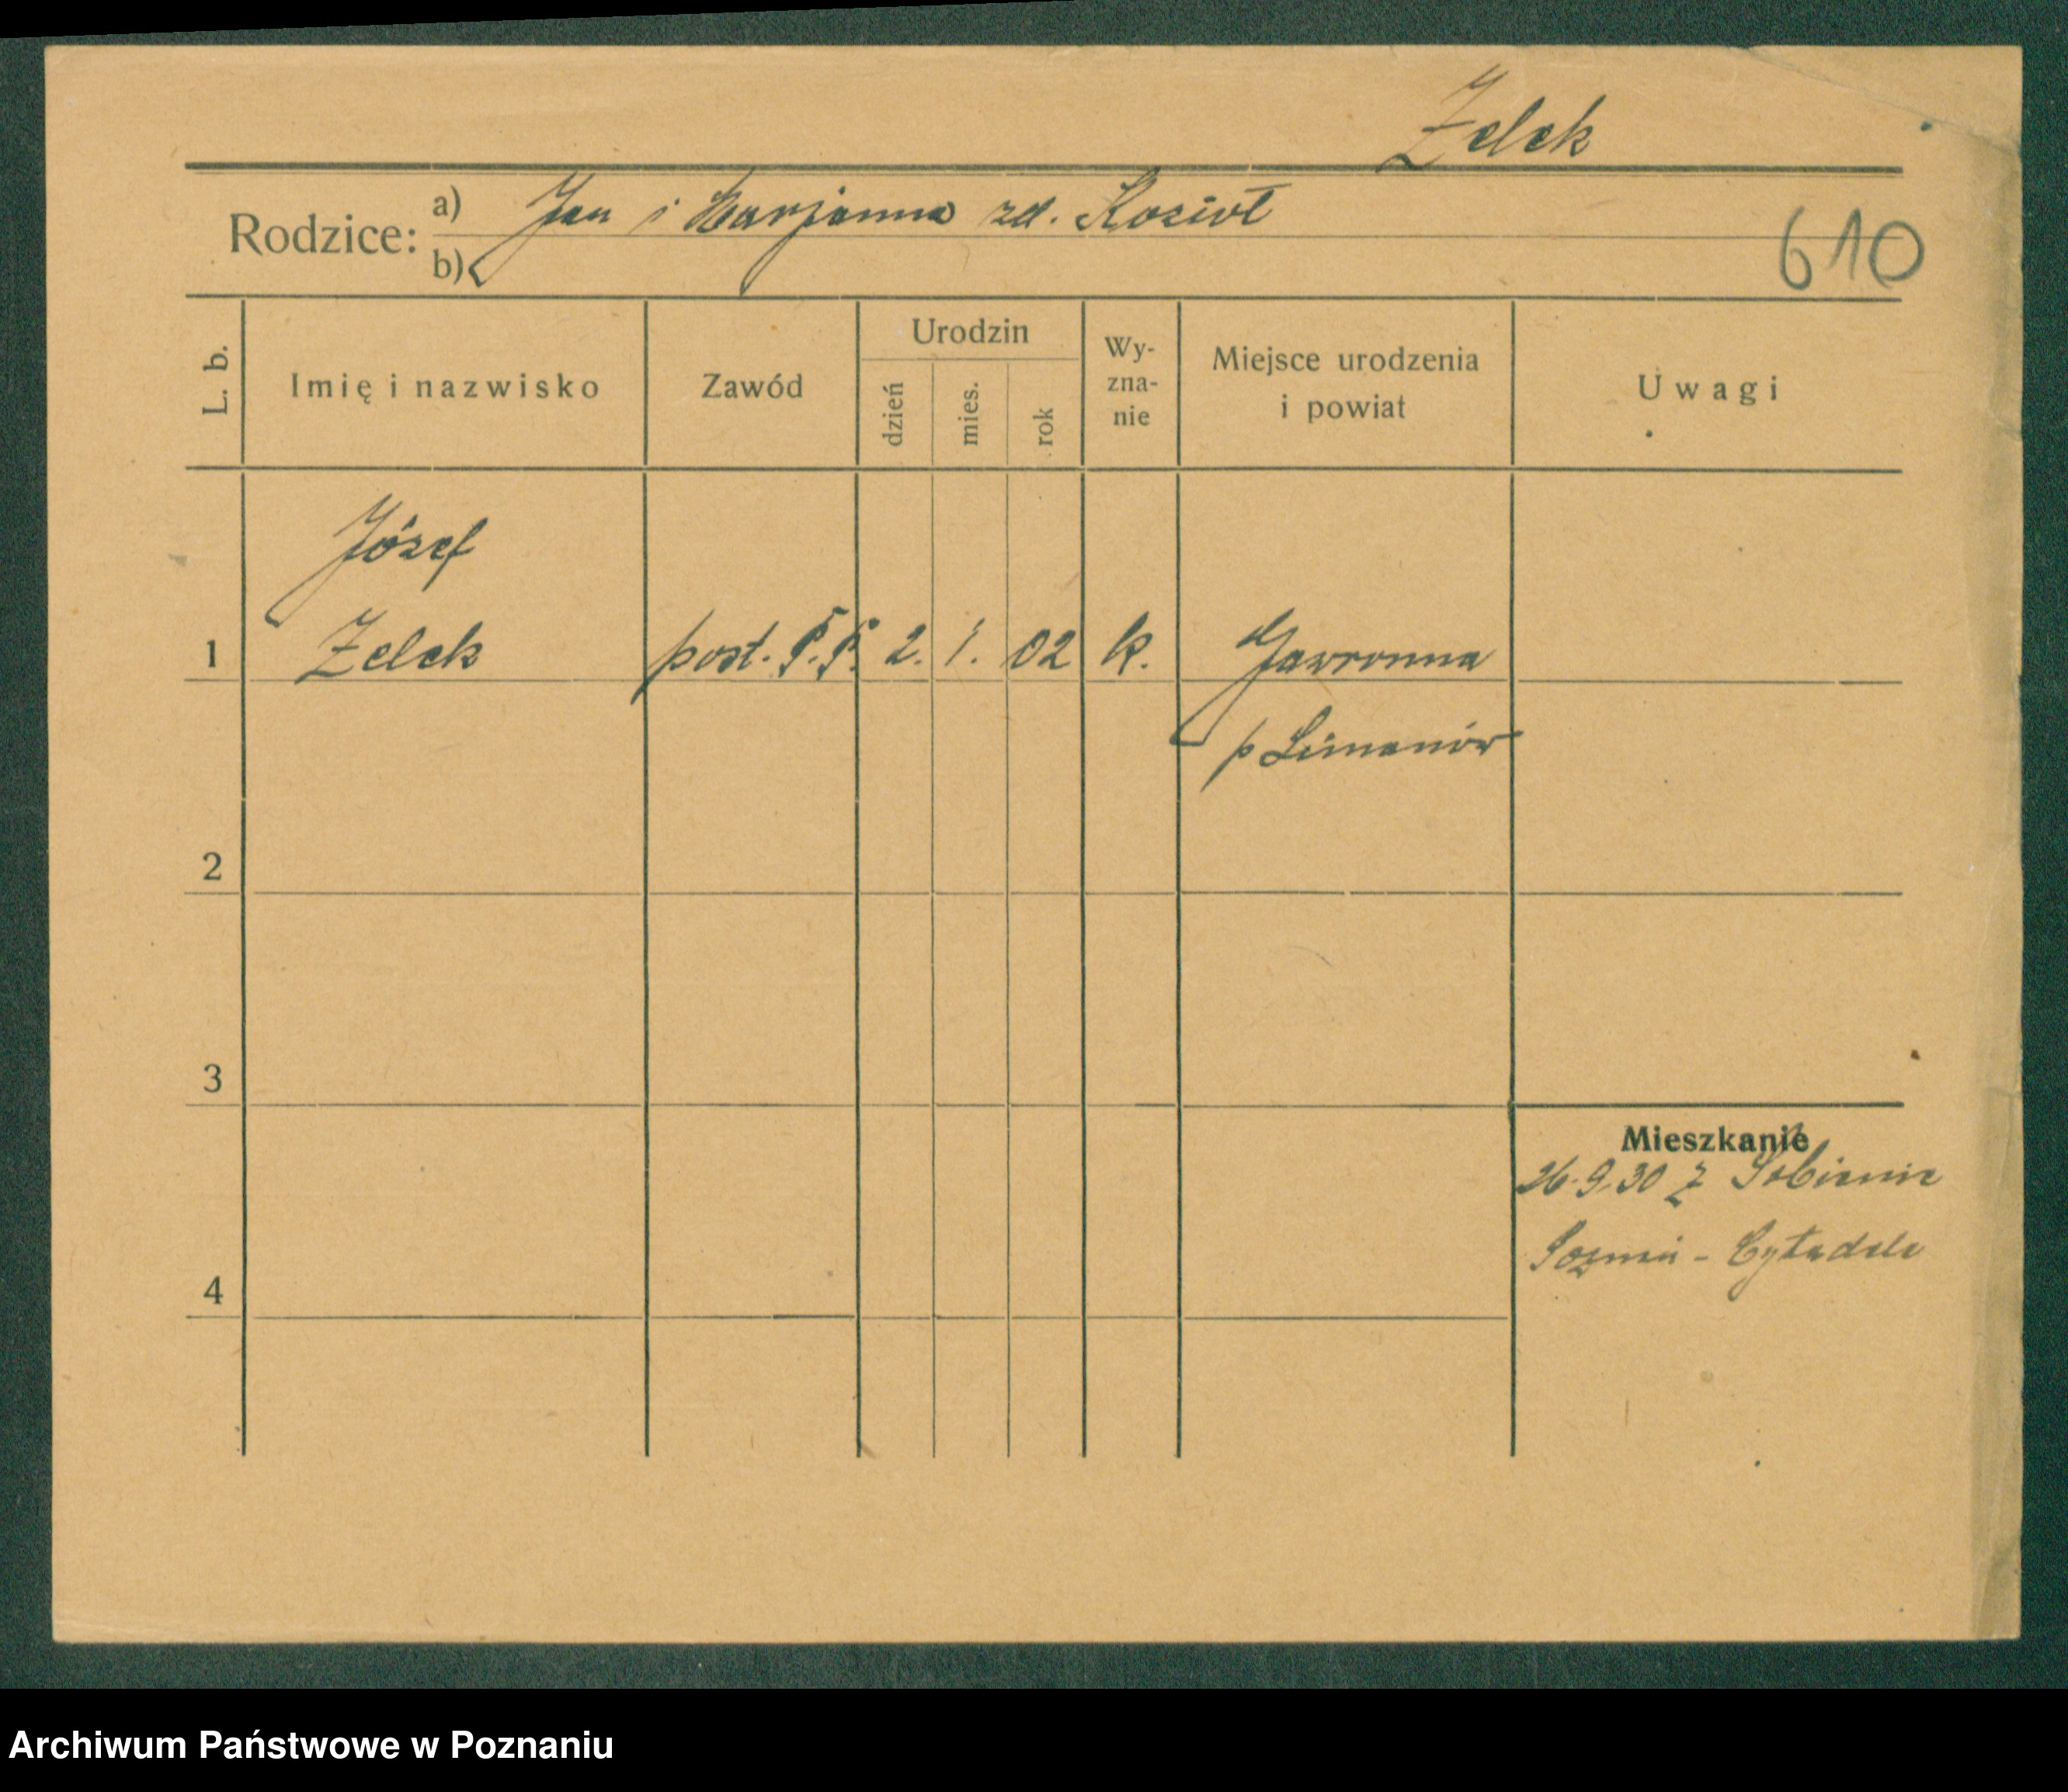 Zelek
Rodzice: a) Jan i Marjanna zd. Kozioł
b)
610
L. b.
Imię i nazwisko
Zawód
Urodzin
dzień
mies.
rok
Wy-
zna-
nie
Miejsce urodzenia
i powiat
Uwagi
Józef
1 Zelek post. P.P. 2. 1. 02 k. Jaworzna
p Limanów
2
3
4
Mieszkanie
26.9.30 z Sobienie
Poznań - Cytadela
Archiwum Państwowe w Poznaniu